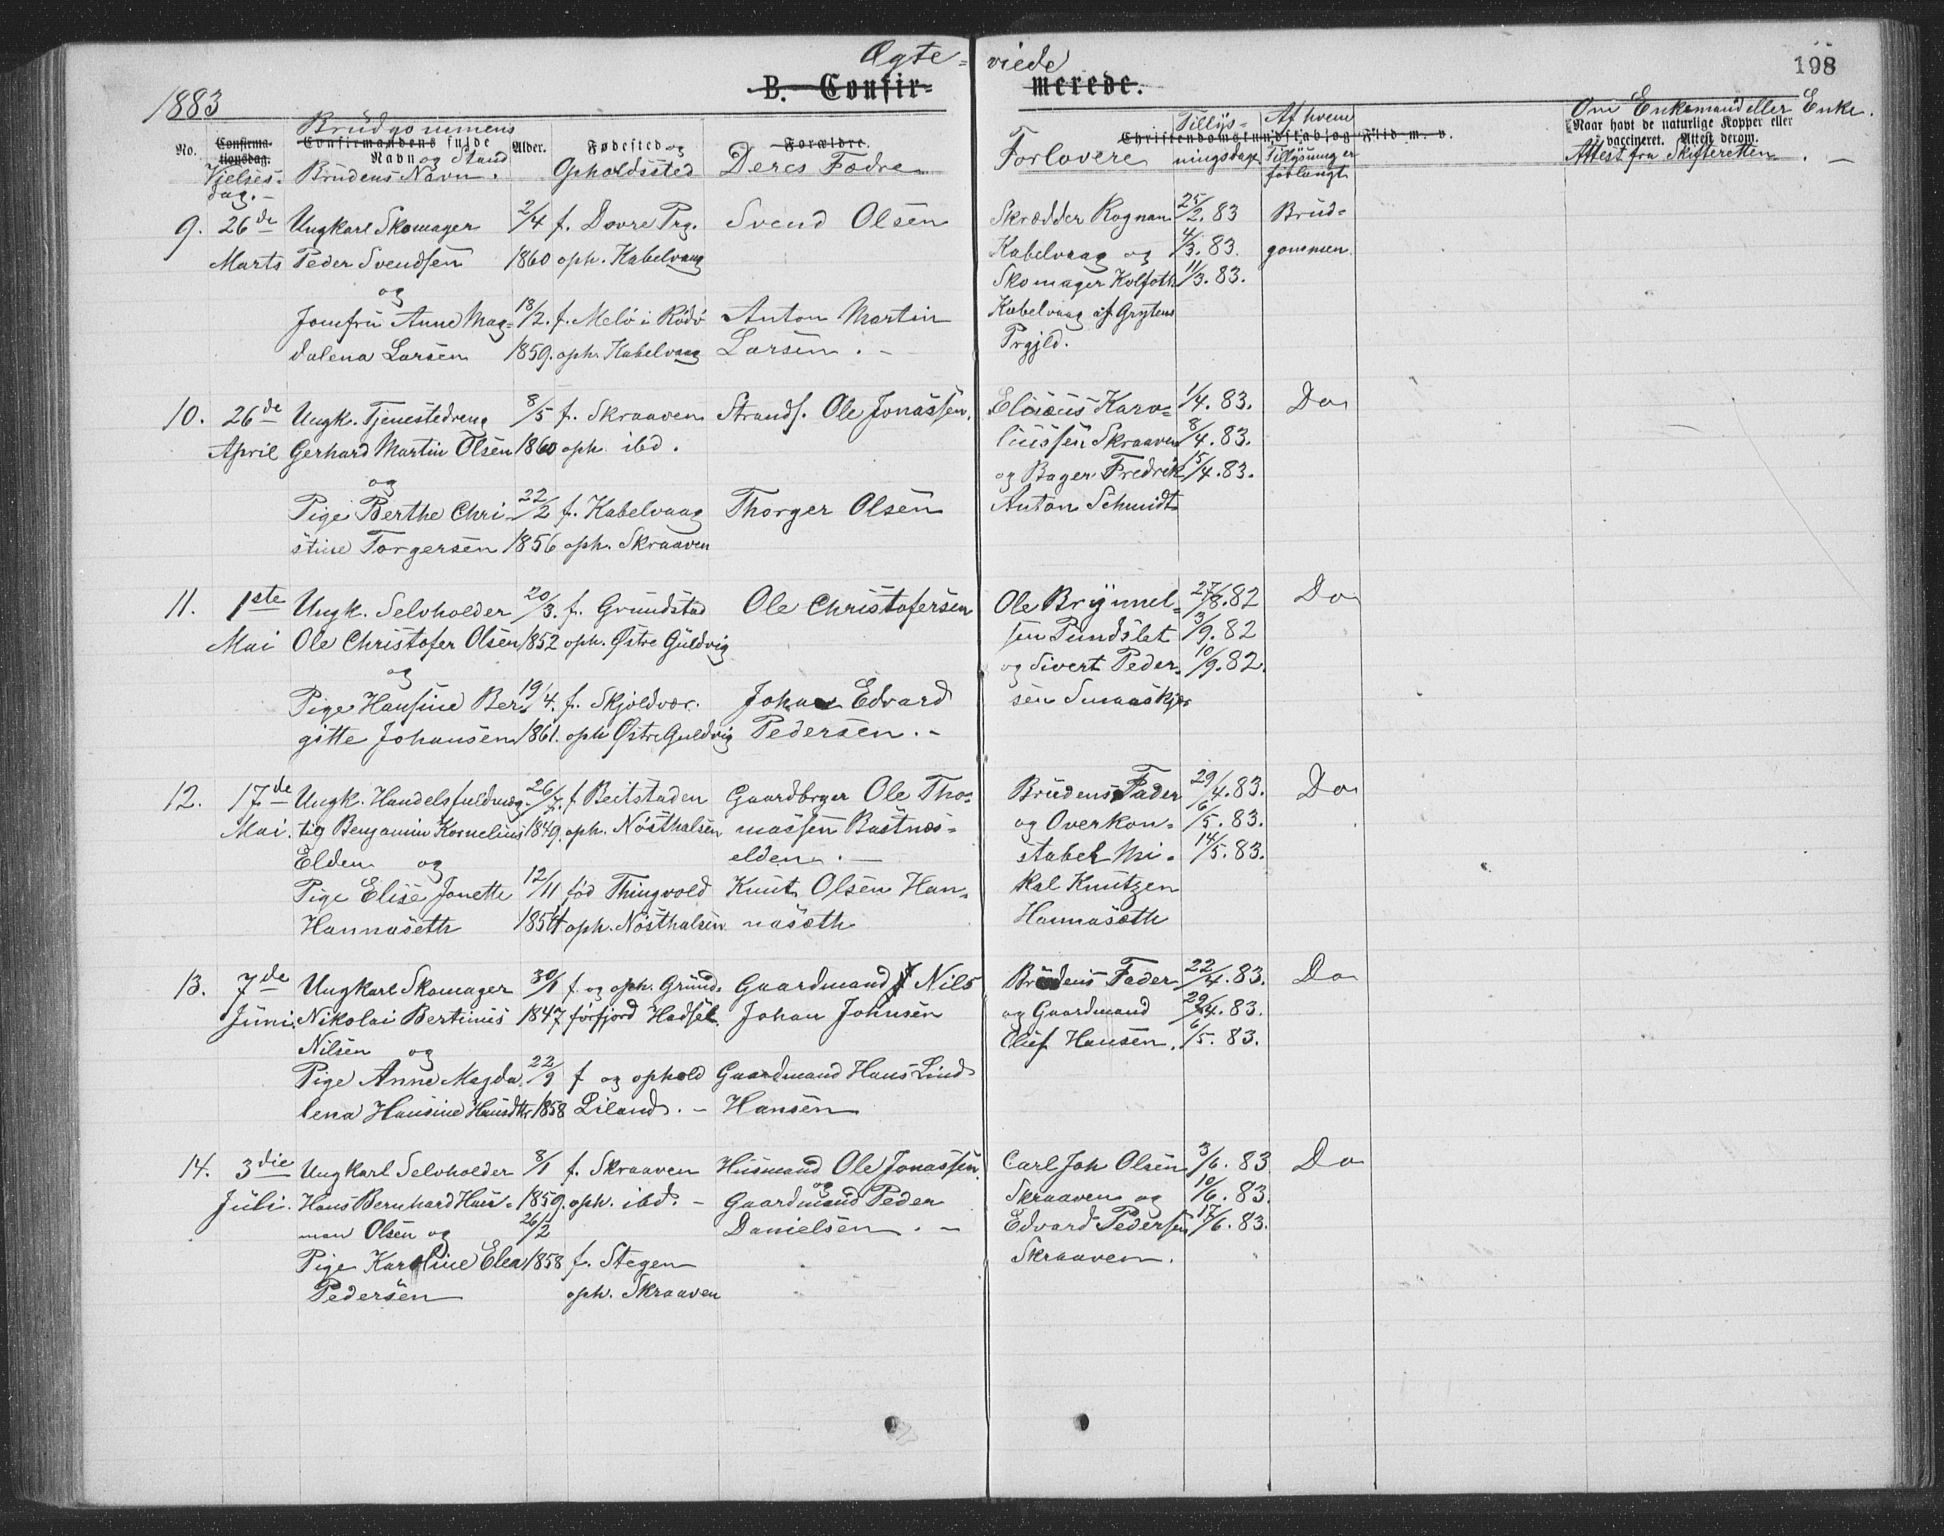 Ægte= viede
B. Confir= merede.
198
1883
No. Confirma-tionsdag. Vielses-dag.- Brudgommens Confirmandens fulde Navn og Stand Brudens Navn. Alder. Fødested og Opholdssted Forældre. Deres Fædre
Forlovere Christendomskundskab og Flid m. v. Tillys-ningsdage Af hvem Tillysning er forlangt Om Enkemand eller Enke. Naar havt de naturlige Kopper eller vaccineret. Attest derom. Attest fra Skifteretten. -
9. 26de Ungkarl Skomager 2/4 f. Dovre Prg. Svend Olsen Skrædder Rognan 25/2. 83 Brud=
Marts Peder Svendsen 1860 oph. Kabelvaag Kabelvaag og 4/3. 83. gommen.
og Skomager Kolfoth 11/3. 83.
Jomfru Anne Mag= 18/2. f. Melö i Rödö Anton Martin Kabelvaag af Grytens
dalena Larsen 1859. oph. Kabelvaag Larsen. - Prgjld.
10. 26de Ungk. Tjenestedreng 8/5 f. Skraaven Strands. Ole Jonassen. Elisæus Karo= 1/4. 83. Do
April Gerhard Martin Olsen 1860 oph. ibd. liussen Skraaven 8/4. 83.
og og Bager Fredrik 15/4. 83.
Pige Berthe Chri- 22/2 f. Kabelvaag Thorger Olsen Anton Schmidt
stine Torgersen 1856 oph. Skraaven
11. 1ste Ungk. Selvholder 20/3. f. Grundstad Ole Christofersen Ole Brynnel= 27/8. 82 Do
Mai Ole Christofer Olsen 1852 oph. Østre Guldvig sen Pundslet 3/9. 82
og og Sivert Peder- 10/9. 82.
Pige Hansine Ber- 19/4. f. Skjoldvær. Johan Edvard sen Smaaskjær
gitte Johansen 1861. oph Østre Guldvig Pedersen. -
12. 17de Ungk. Handelsfuldmæg- 26/7. f Beitstaden Gaardbrger Ole Tho= Brudens Fader 29/4. 83. Do
Mai. tig Benjamin Kornelius 1849. oph. Nösthalsen massen Bastnæs= og Overkon= 6/5. 83.
Elden og elden. - stabel Mi- 14/5. 83.
Pige Elise Jonette 12/11 föd Thingvold Knut Olsen Han= kal Knutzen
Hannaseth 1854 oph. Nösthalsen nasæth Hannasæth
13. 7de Ungkarl Skomager 30/1 f. og oph. Grund- Gaardmand Nils Brudens Fader 22/4. 83. Do
Juni Nikolai Bertinus 1847 förfjord Hadsel. Johan Johnsen og Gaardmand 29/4. 83.
Nilsen og Oluf Hansen. 6/5. 83.
Pige Anne Magda- 22/9 f og ophold Gaardmand Hans Lind
lena Hansine Hansdtr 1858 Liland. - Hansen
14. 3die Ungkarl Selvholder 8/1 f. Skraaven Husmand Ole Jonassen. Carl Joh Olsen 3/6. 83 Do
og
Juli. Hans Bernhard Haus- 1859. oph. ibd. - Gaardmand Peder Skraaven og 10/6. 83.
man Olsen og 26/2 Danielsen. - Edvard Pedersen 17/6. 83.
Pige Karoline Elea 1858 f. Stegen Skraaven.
Pedersen oph. Skraaven